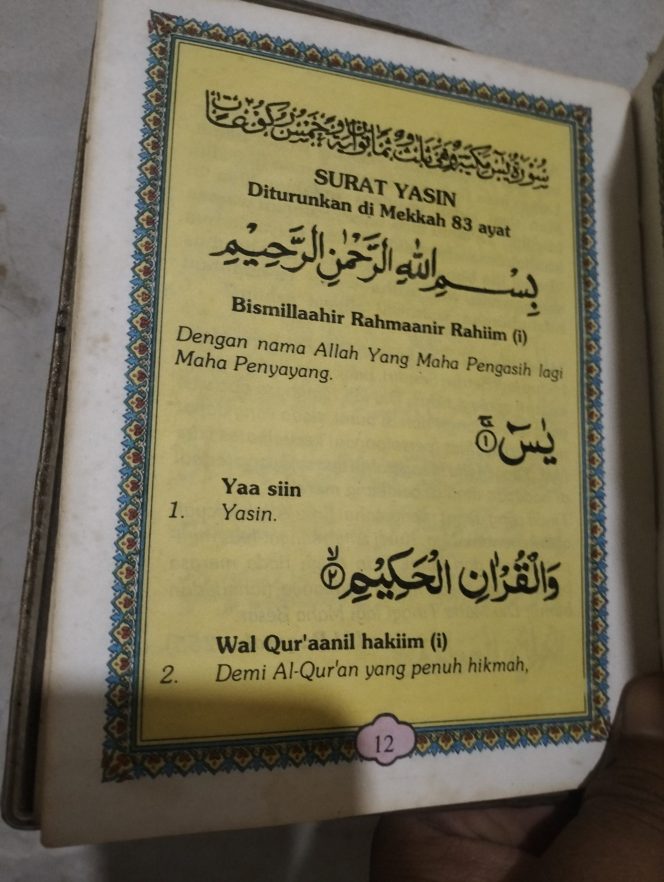 سُورَةُ يٰسٓ مَكِّيَّةٌ وَهِيَ ثَلَاثٌ وَثَمَانُونَ اٰيَةً وَخَمْسُ رُكُوعَاتٍ
SURAT YASIN
Diturunkan di Mekkah 83 ayat
بِسْمِ اللّٰهِ الرَّحْمٰنِ الرَّحِيْمِ
Bismillaahir Rahmaanir Rahiim (i)
Dengan nama Allah Yang Maha Pengasih lagi
Maha Penyayang.
يٰسٓ ۚ ۝١
Yaa siin
1. Yasin.
وَالْقُرْاٰنِ الْحَكِيْمِ ۙ ۝٢
Wal Qur'aanil hakiim (i)
2. Demi Al-Qur'an yang penuh hikmah,
12